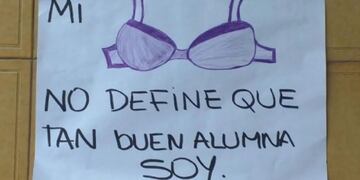 MI
NO DEFINE QUE
TAN BUEN ALUMNA
SOY.